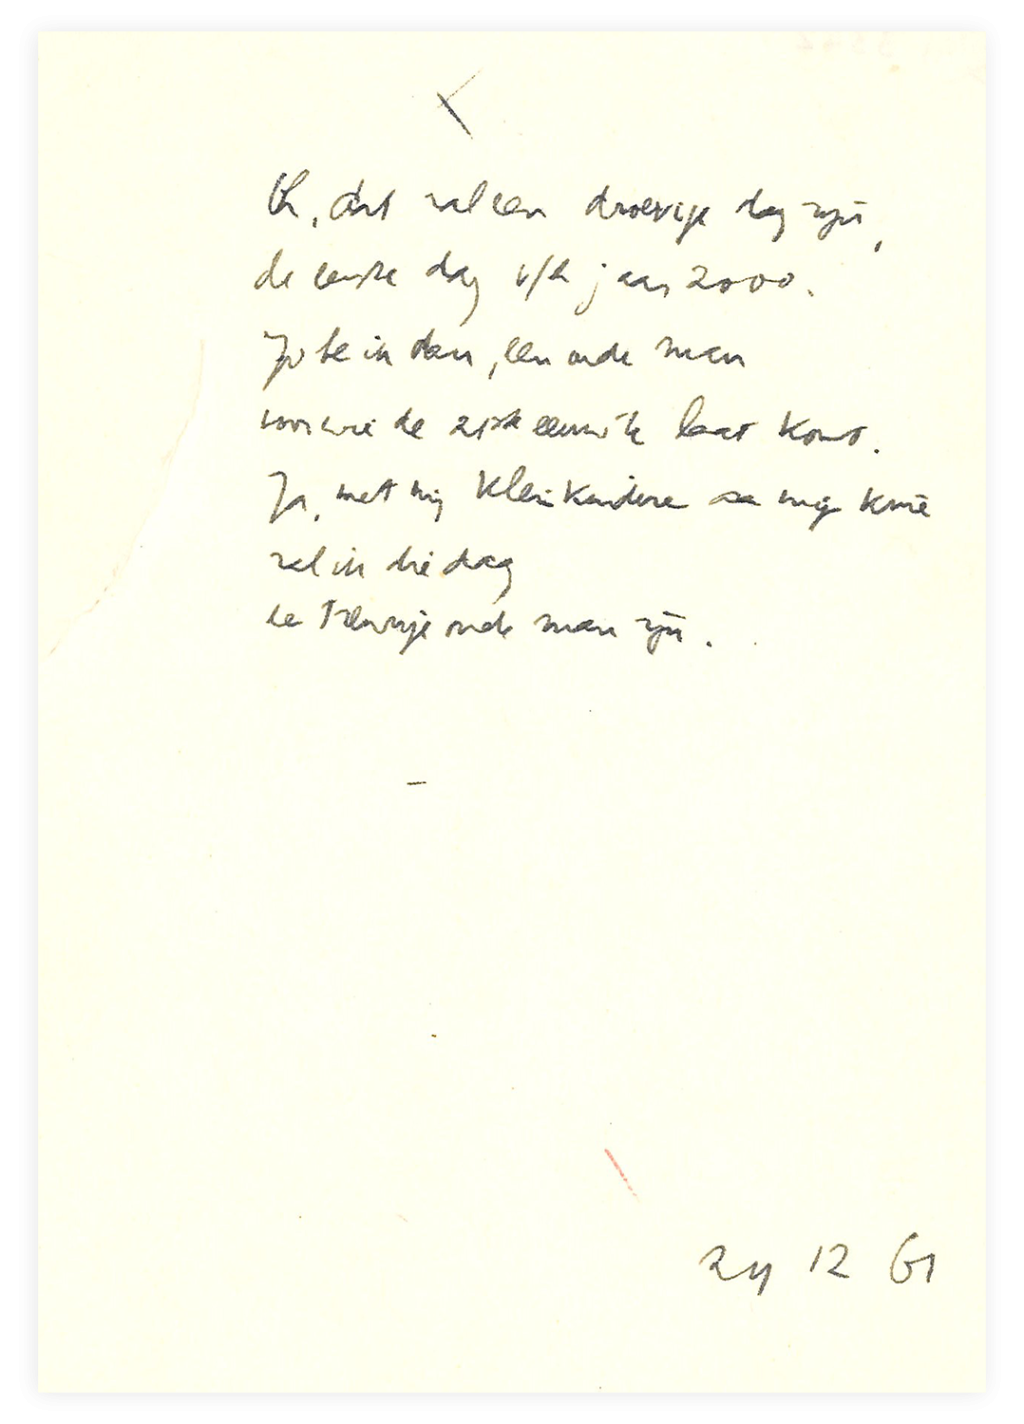 Oh, dat zal een droevige dag zijn,
de eerste dag v/h jaar 2000.
Jobe ik dan, een oude man
voor wie de 21ste eeuw te laat komt.
Ja, met mij kleinkinderen op mijn knie
zal ik die dag
een treurige oude man zijn.
24 12 61